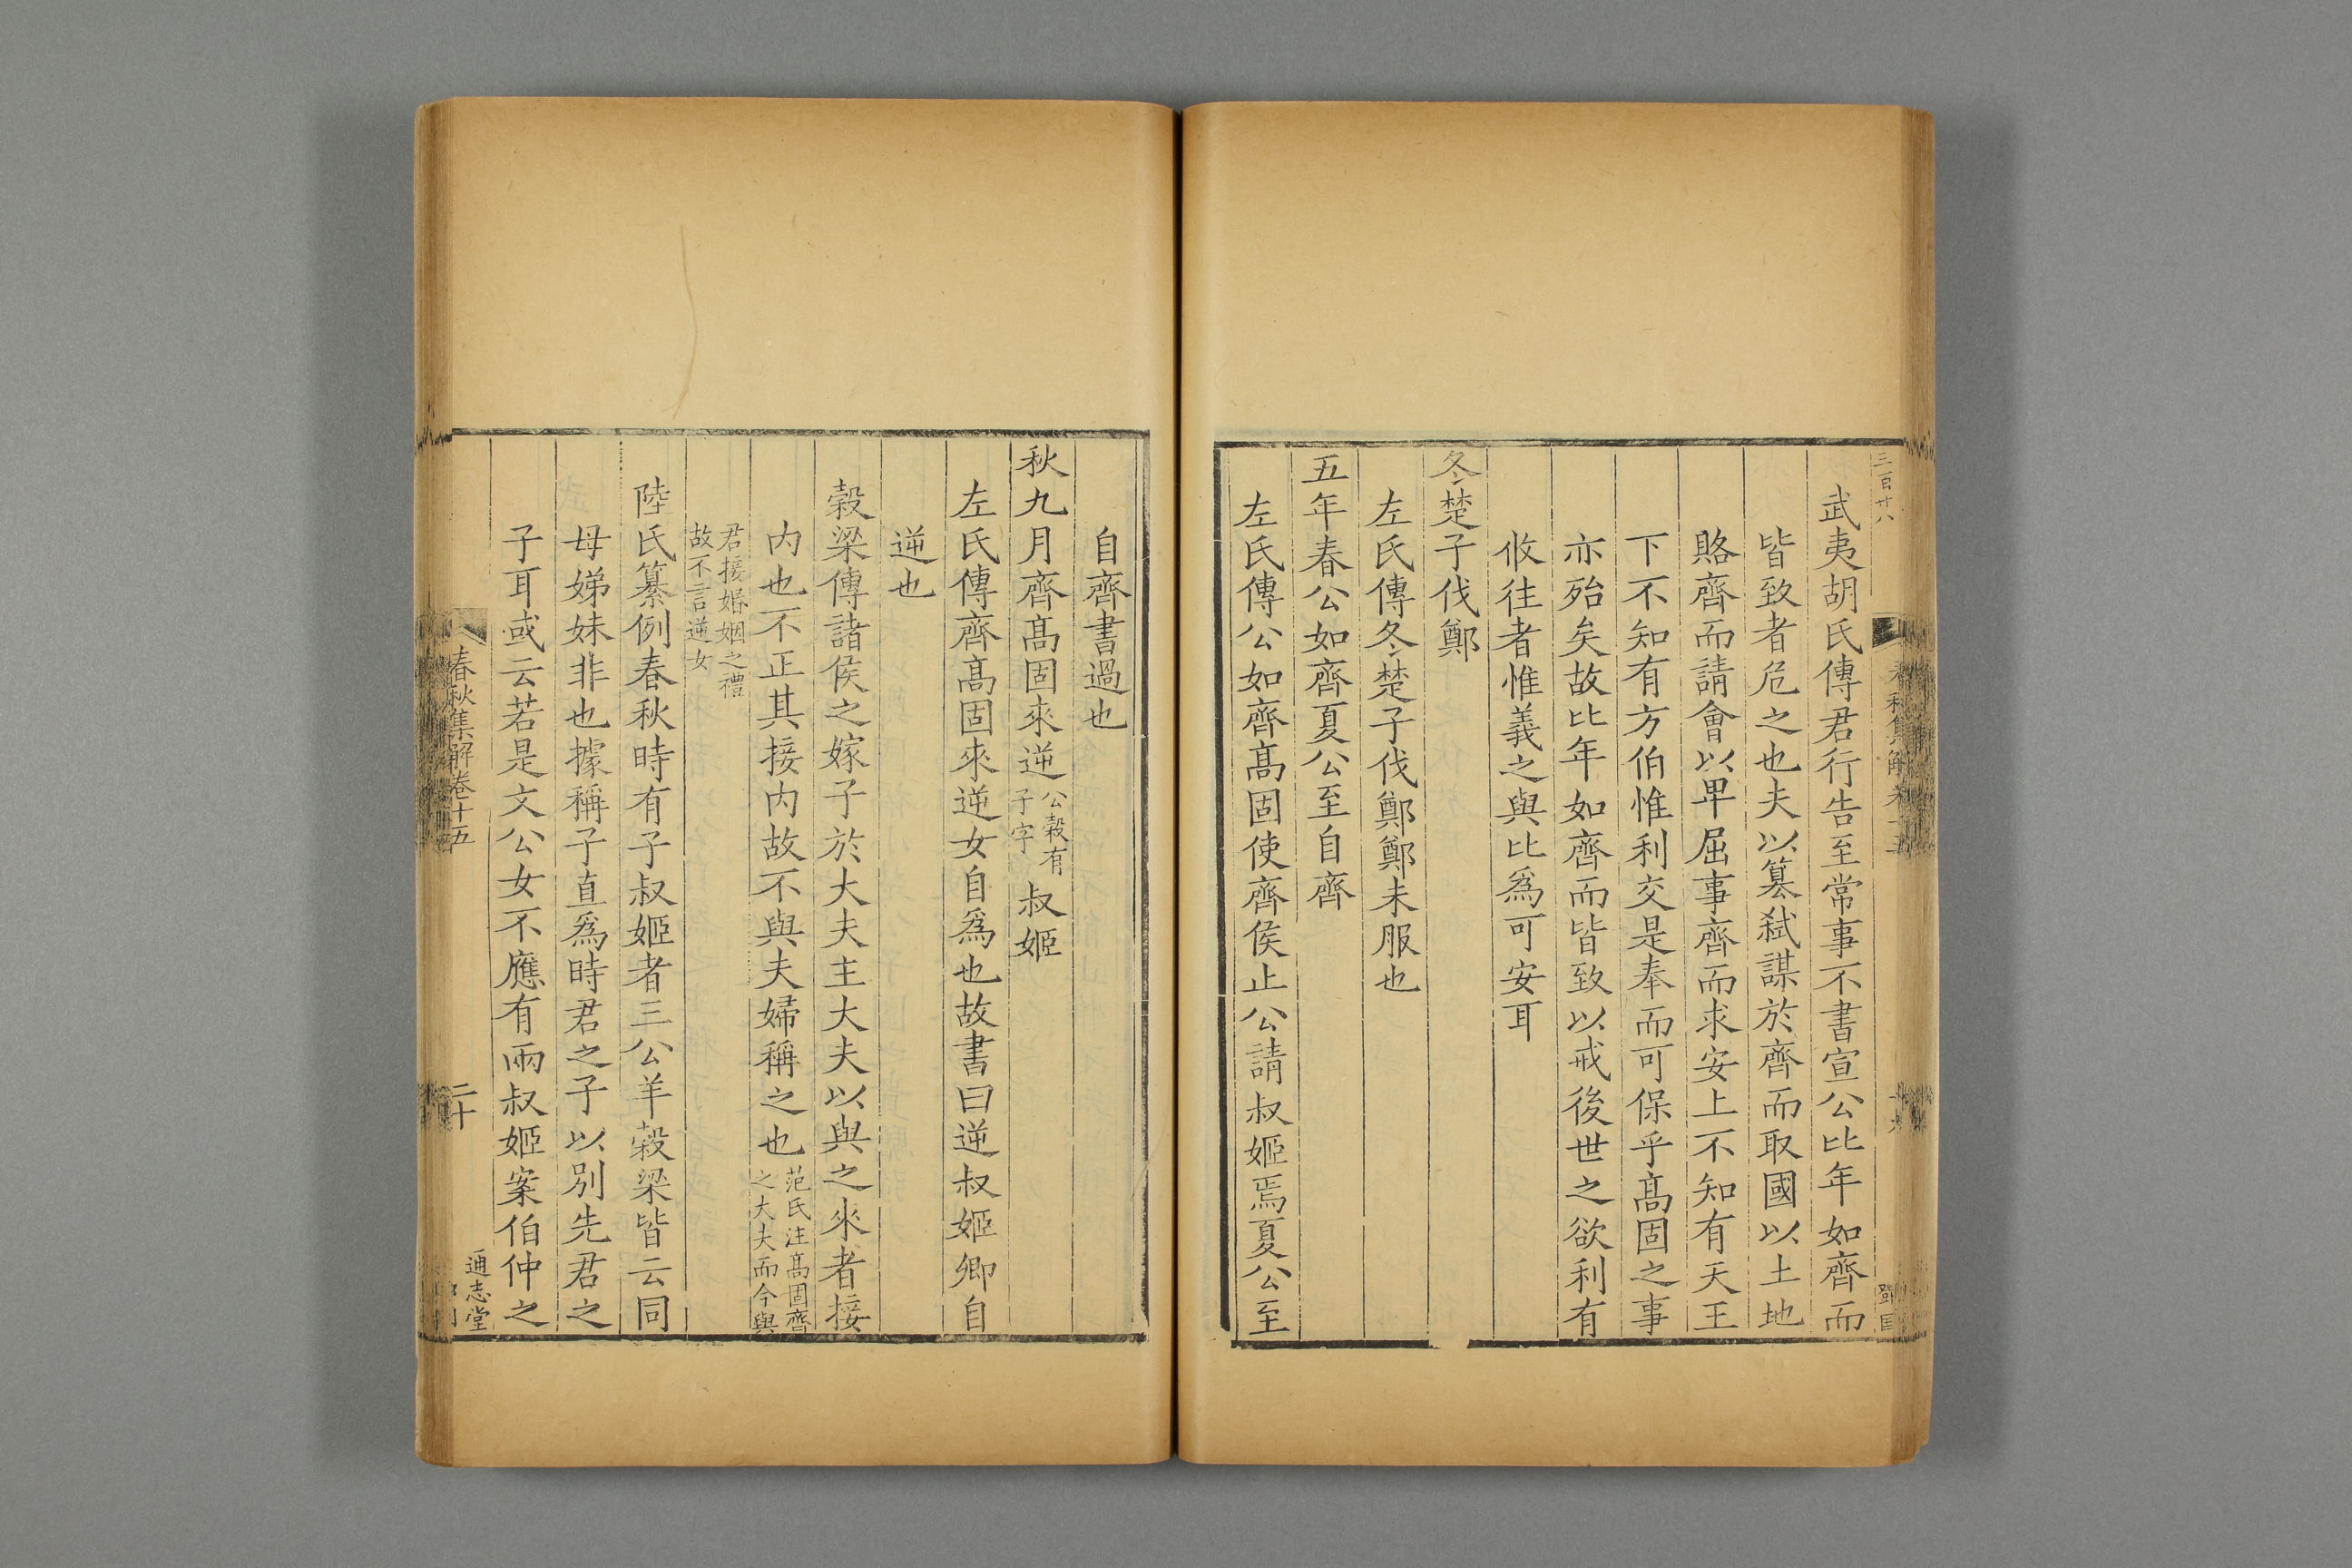 三百廿八
武夷胡氏傳君行告至常事不書宣公比年如齊而
皆致者危之也夫以簒弑謀於齊而取國以土地
賂齊而請會以卑屈事齊而求安上不知有天王
下不知有方伯惟利交是奉而可保乎髙固之事
亦殆矣故比年如齊而皆致以戒後世之欲利有
攸往者惟義之與比爲可安耳
冬楚子伐鄭
左氏傳冬楚子伐鄭鄭未服也
五年春公如齊夏公至自齊
左氏傳公如齊髙固使齊侯止公請叔姬焉夏公至
自齊書過也
秋九月齊髙固來逆公榖有子字叔姬
左氏傳齊髙固來逆女自爲也故書曰逆叔姬卿自
逆也
榖梁傳諸侯之嫁子於大夫主大夫以與之來者接
内也不正其接内故不與夫婦稱之也范氏注髙固齊之大夫而今與
君接婚姻之禮故不言逆女
陸氏纂例春秋時有子叔姬者三公羊榖梁皆云同
母娣妹非也據稱子直爲時君之子以別先君之
子耳或云若是文公女不應有兩叔姬案伯仲之
春秋集解卷十五
二十
通志堂